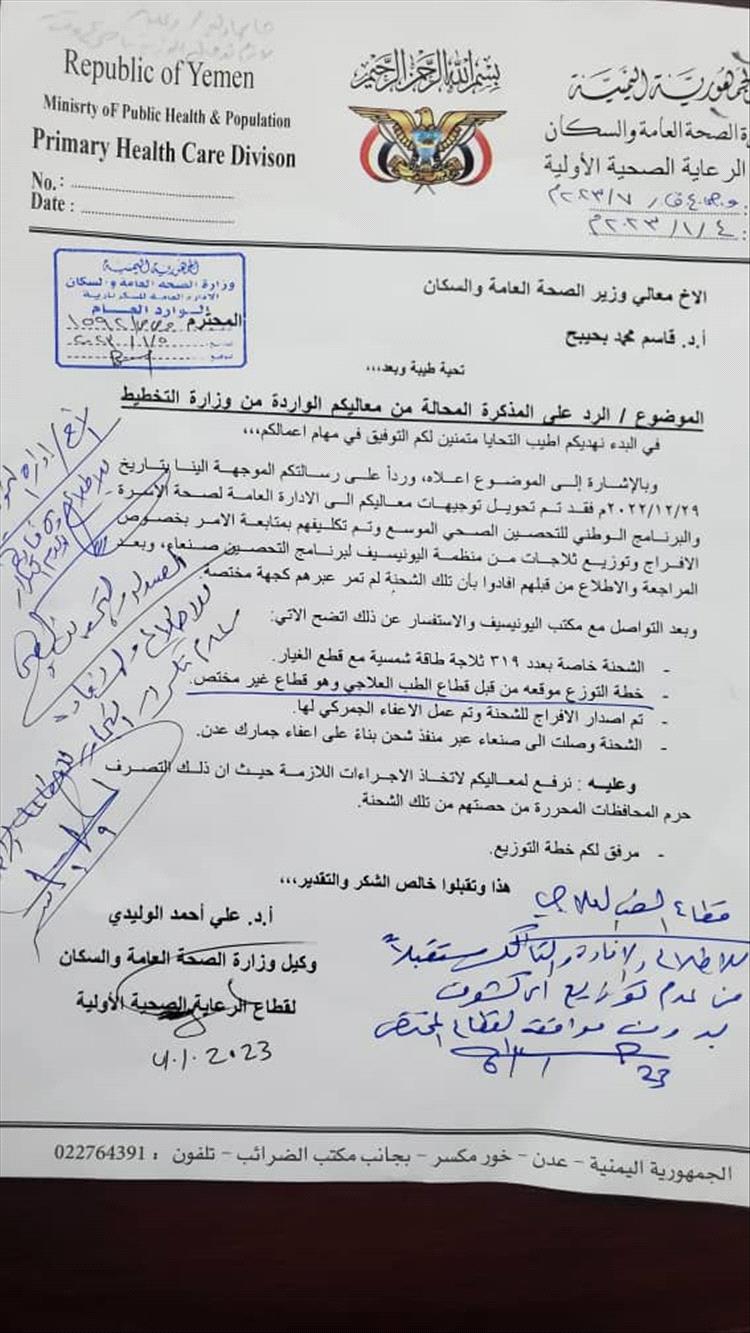 Republic of Yemen
Minisrty oF Public Health & Population
Primary Health Care Divison
No. :
Date :
بسم الله الرحمن الرحيم
الجمهورية اليمنية
وزارة الصحة العامة والسكان
الرعاية الصحية الأولية
٢٠٢٣/١/٤م
الجمهورية اليمنية
وزارة الصحة العامة والسكان
الادارة العامة للسكرتارية
الوارد العام
الاخ معالي وزير الصحة العامة والسكان
أ.د. قاسم محمد بحيبح
المحترم
تحية طيبة وبعد،،،
الموضوع / الرد على المذكرة المحالة من معاليكم الواردة من وزارة التخطيط
في البدء نهديكم اطيب التحايا متمنين لكم التوفيق في مهام اعمالكم،،،
وبالإشارة إلى الموضوع اعلاه، ورداً على رسالتكم الموجهة الينا بتاريخ
٢٠٢٢/١٢/٢٩م فقد تم تحويل توجيهات معاليكم الى الادارة العامة لصحة الأسرة
والبرنامج الوطني للتحصين الصحي الموسع وتم تكليفهم بمتابعة الامر بخصوص
الافراج وتوزيع ثلاجات من منظمة اليونيسيف لبرنامج التحصين صنعاء، وبعد
المراجعة والاطلاع من قبلهم افادوا بأن تلك الشحنة لم تمر عبرهم كجهة مختصة.
وبعد التواصل مع مكتب اليونيسيف والاستفسار عن ذلك اتضح الاتي:
- الشحنة خاصة بعدد ٣١٩ ثلاجة طاقة شمسية مع قطع الغيار.
- خطة التوزع موقعه من قبل قطاع الطب العلاجي وهو قطاع غير مختص.
- تم اصدار الافراج للشحنة وتم عمل الاعفاء الجمركي لها.
- الشحنة وصلت الى صنعاء عبر منفذ شحن بناءً على اعفاء جمارك عدن.
وعليه : نرفع لمعاليكم لاتخاذ الاجراءات اللازمة حيث ان ذلك التصرف
حرم المحافظات المحررة من حصتهم من تلك الشحنة.
- مرفق لكم خطة التوزيع.
هذا وتقبلوا خالص الشكر والتقدير،،،
أ.د. علي أحمد الوليدي
وكيل وزارة الصحة العامة والسكان
لقطاع الرعاية الصحية الأولية
4.1.2023
قطاع الطب العلاجي
للاطلاع والافادة والتأكد مستقبلاً
من عدم توزيع اي كشوف
بدون موافقة القطاع المختص
الجمهورية اليمنية - عدن - خور مكسر - بجانب مكتب الضرائب - تلفون : 022764391